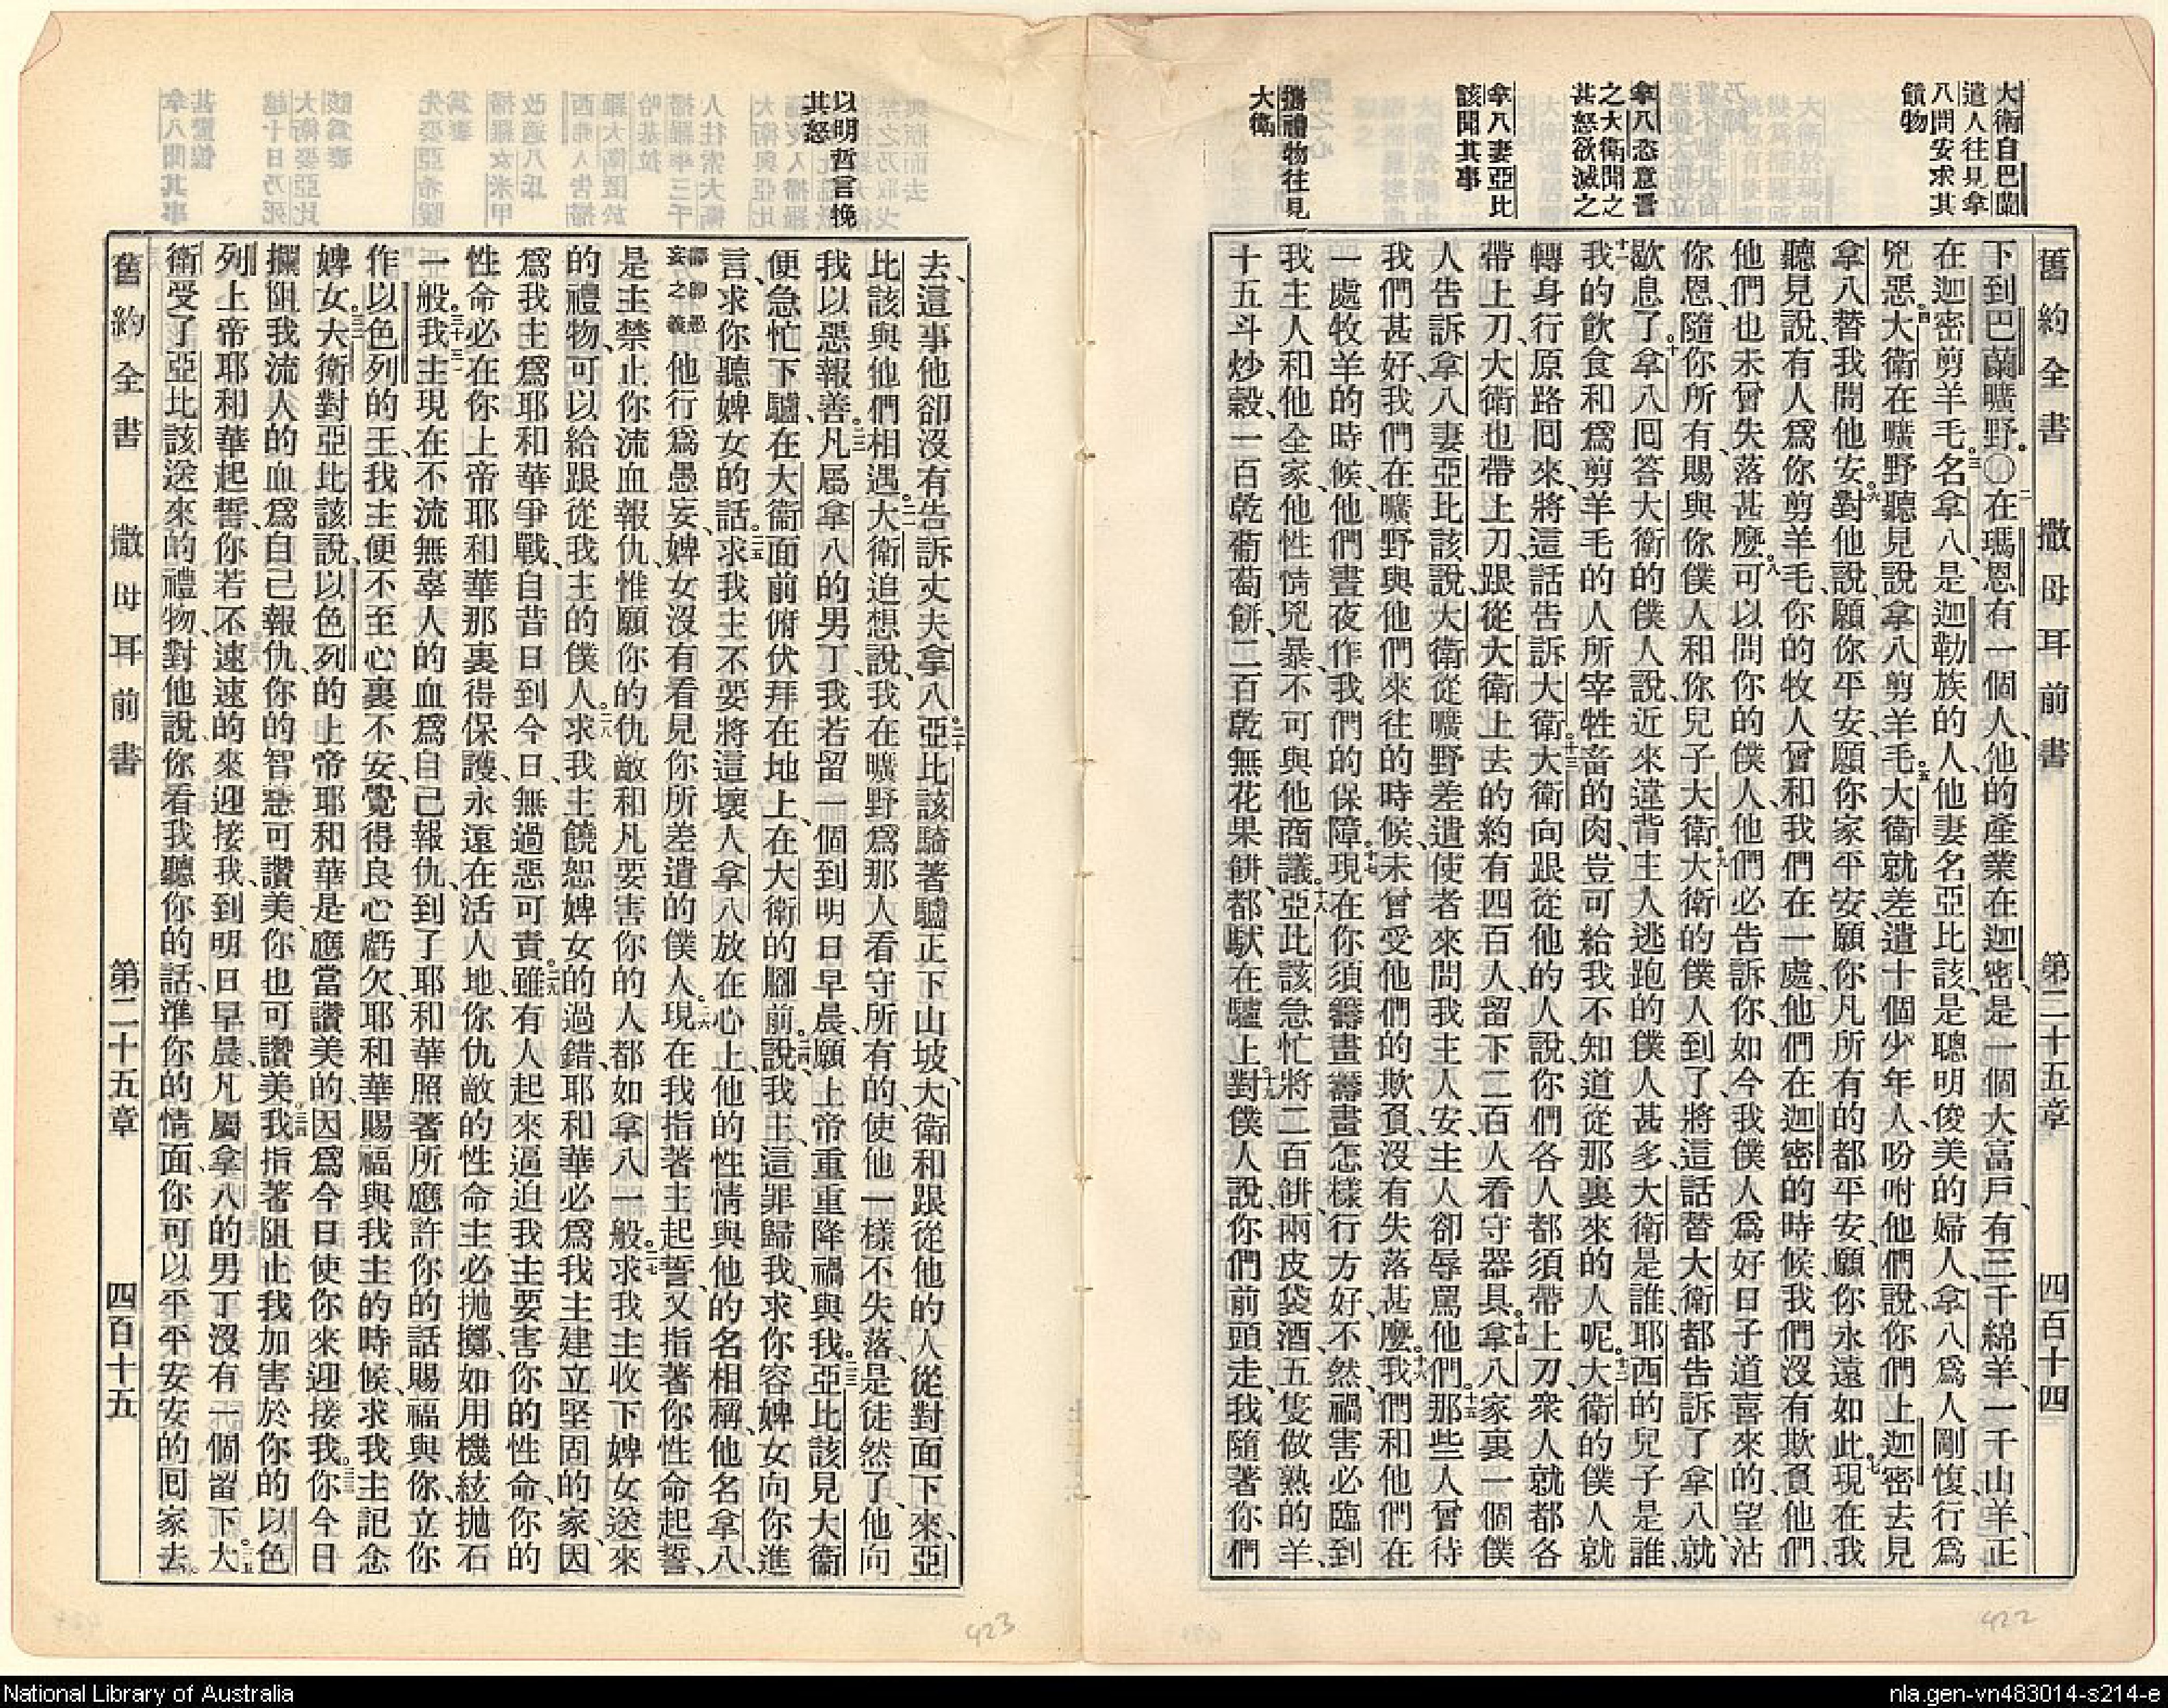 大衛自巴蘭
遣人往見拿
八問安求其
饋物
拿八恣意詈
之大衛聞之
甚怒欲滅之
拿八妻亞比
該聞其事
攜禮物往見
大衛
舊約全書 撒母耳前書 第二十五章 四百十四
下到巴蘭曠野。〇二在瑪恩有一個人、他的產業在迦密、是一個大富戶、有三千綿羊、一千山羊、正
在迦密剪羊毛。三名拿八、是迦勒族的人、他妻名亞比該、是聰明俊美的婦人、拿八爲人剛愎、行爲
兇惡。四大衛在曠野聽見說、拿八剪羊毛。五大衛就差遣十個少年人、吩咐他們說、你們上迦密去見
拿八、替我問他安。六對他說、願你平安、願你家平安、願你凡所有的都平安、願你永遠如此。七現在我
聽見說、有人爲你剪羊毛、你的牧人曾和我們在一處、他們在迦密的時候、我們沒有欺負他們、
他們也未曾失落甚麼。八可以問你的僕人、他們必告訴你、如今我僕人爲好日子道喜來的、望沾
你恩、隨你所有、賜與你僕人和你兒子大衛。九大衛的僕人到了、將這話替大衛都告訴了拿八、就
歇息了。十拿八回答大衛的僕人說、近來違背主人逃跑的僕人甚多、大衛是誰、耶西的兒子是誰、
十一我的飲食和爲剪羊毛的人所宰牲畜的肉、豈可給我不知道從那裏來的人呢。十二大衛的僕人就
轉身行原路回來、將這話告訴大衛。十三大衛向跟從他的人說、你們各人都須帶上刀、衆人就都各
帶上刀、大衛也帶上刀、跟從大衛上去的約有四百人、留下二百人看守器具。十四拿八家裏一個僕
人告訴拿八妻亞比該說、大衛從曠野差遣使者來問我主人安、主人卻辱罵他們。十五那些人曾待
我們甚好、我們在曠野與他們來往的時候、未曾受他們的欺負、沒有失落甚麼。十六我們和他們在
一處牧羊的時候、他們晝夜作我們的保障。十七現在你須籌畫籌畫怎樣行方好、不然、禍害必臨到
我主人和他全家、他性情兇暴、不可與他商議。十八亞比該急忙將二百餅、兩皮袋酒、五隻做熟的羊、
十五斗炒穀、一百乾葡萄餅、二百乾無花果餅、都馱在驢上。十九對僕人說、你們前頭走、我隨著你們
422
以明哲言挽
其怒
去、這事他卻沒有告訴丈夫拿八。二十亞比該騎著驢正下山坡、大衛和跟從他的人從對面下來、亞
比該與他們相遇。二一大衛追想說、我在曠野爲那人看守所有的、使他一樣不失落、是徒然了、他向
我以惡報善。二二凡屬拿八的男丁、我若留一個到明日早晨、願上帝重重降禍與我。二三亞比該見大衛
便急忙下驢、在大衛面前俯伏拜在地上、在大衛的腳前。二四說、我主、這罪歸我、求你容婢女向你進
言、求你聽婢女的話。二五求我主不要將這壞人拿八放在心上、他的性情與他的名相稱、他名拿八、
譯卽愚妄之義他行爲愚妄、婢女沒有看見你所差遣的僕人。二六現在我指著主起誓、又指著你性命起誓、
是主禁止你流血報仇、惟願你的仇敵和凡要害你的人都如拿八一般。二七求我主收下婢女送來
的禮物、可以給跟從我主的僕人。二八求我主饒恕婢女的過錯、耶和華必爲我主建立堅固的家、因
爲我主爲耶和華爭戰、自昔日到今日、無過惡可責。二九雖有人起來逼迫我主要害你的性命、你的
性命必在你上帝耶和華那裏得保護、永遠在活人地、你仇敵的性命、主必拋擲、如用機絃拋石
一般。三十我主現在不流無辜人的血爲自己報仇、到了耶和華照著所應許你的話賜福與你、立你
作以色列的王、我主便不至心裏不安、覺得良心虧欠、耶和華賜福與我主的時候、求我主記念
婢女。三二大衛對亞比該說、以色列的上帝耶和華是應當讚美的、因爲今日使你來迎接我。三三你今日
攔阻我流人的血爲自己報仇、你的智慧可讚美、你也可讚美。三四我指著阻止我加害於你的以色
列上帝耶和華起誓、你若不速速的來迎接我、到明日早晨、凡屬拿八的男丁沒有一個留下。三五大
衛受了亞比該送來的禮物、對他說、你看我聽你的話、準你的情面、你可以平平安安的回家去。
舊約全書 撒母耳前書 第二十五章 四百十五
423
National Library of Australia
nla.gen-vn483014-s214-e